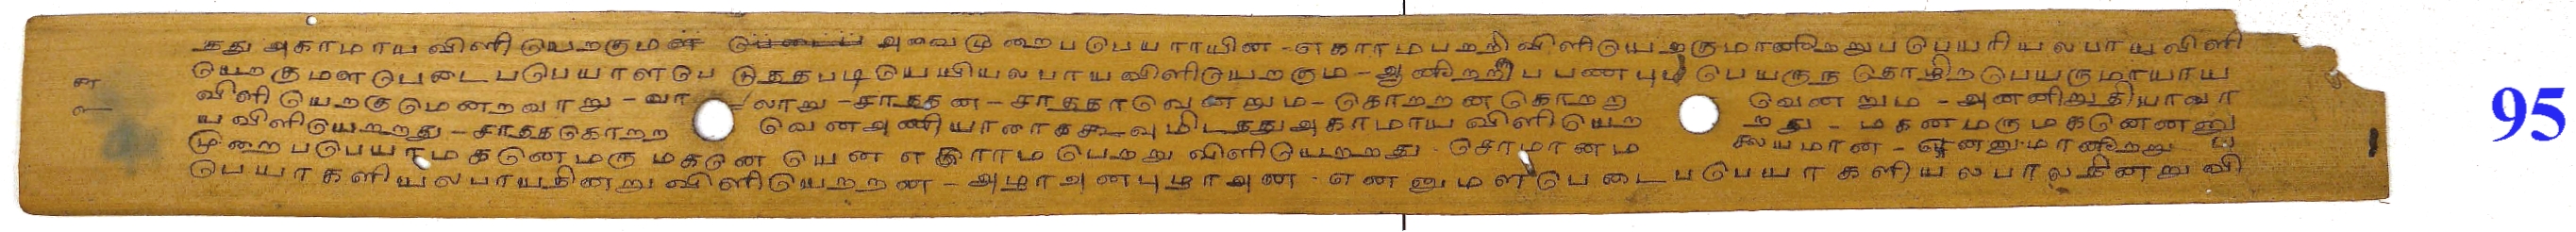 தது அகாமாய விளியெறகுமன அவைமுறைபபெயராயின-எகாரமபறறி விளியெறகுமானிறறுபபெயரியலபாயவிளி
யெறகுமளபெடைபபெயாளபெடுததபடியெயியலபாயவிளியெறகும-ஆனிறறிபபணபுபபெயருந தொழிறபெயருமாயாய
விளியெறகுமெனறவாறு-வா லாறு-சாததன-சாததாவெனறும-கொறறனகொறறா வெனறும-அனனிறுதியாவா
ய விளியெறறது-சாததகொறற வெனஅணியாராககூவுமிடதது அகாமாய விளியெற றது-மகனமருமகனென்னு
முறைபபெயாமகனெமருமகனெ யென எகாரமபெறறு விளியெறறது-சொமானம சலயமான-எனனுமானிறறு ப
பெயாகளியலபாயநினறு விளியெறறன-அழாஅனபுழாஅன-எனனுமளபெடைபபெயாகளியலபாலநினறு வி
ன
௳
95